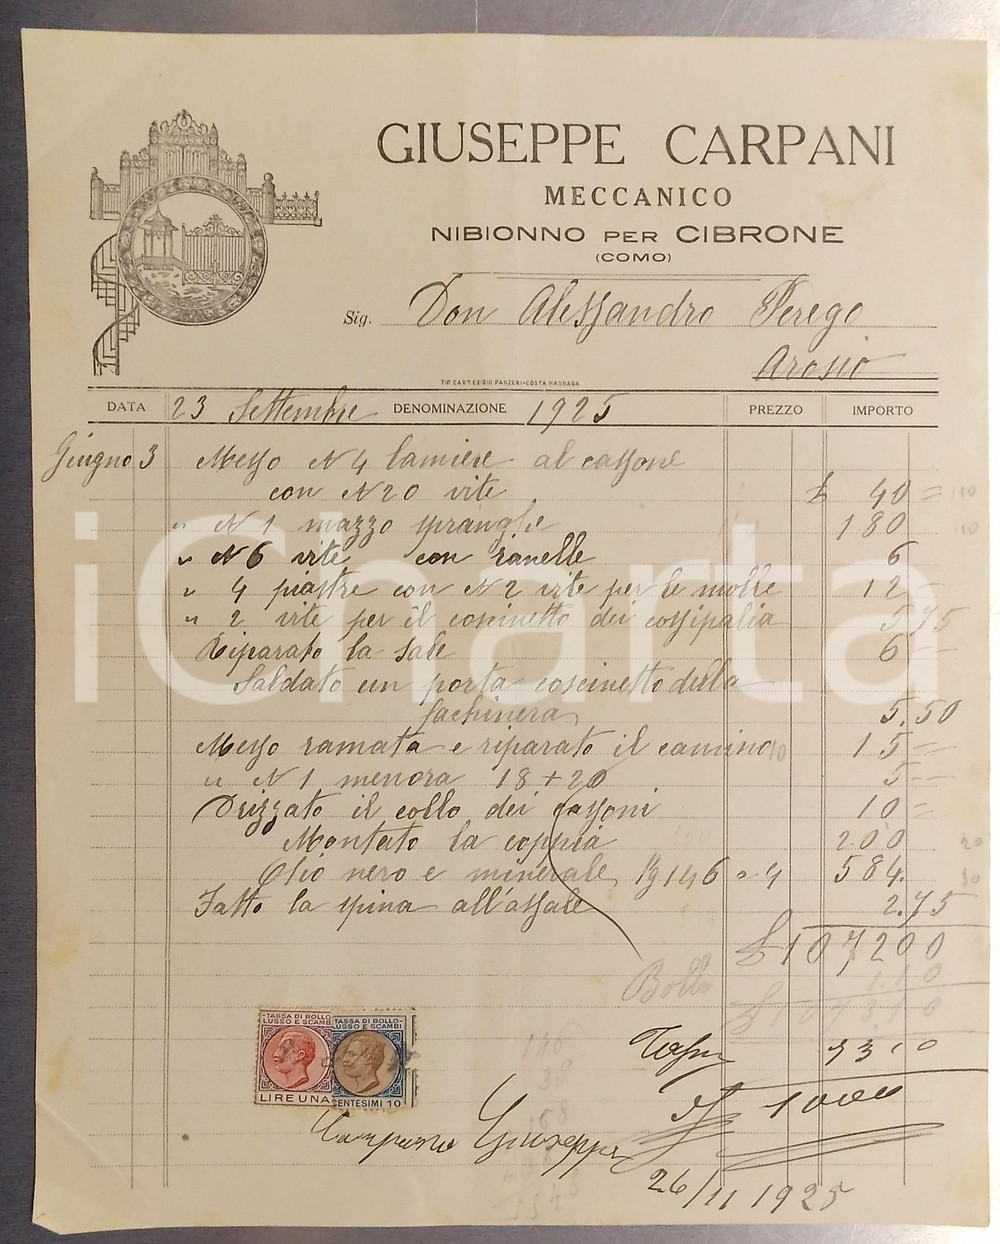 GIUSEPPE CARPANI
MECCANICO
NIBIONNO PER CIBRONE
(COMO)
Sig. Don Alessandro Perego
Arosio
TIP. CART. EGIDIO PANZERI-COSTA MASNAGA
DATA 23 Settembre DENOMINAZIONE 1925 PREZZO IMPORTO
Giugno 3 Messo N 4 lamiere al cassone
con N 20 vite £ 40 =
" N 1 mazzo spranghe 180
" N 6 vite con ranelle 6
" 4 piastre con N 2 vite per le molle 12
" 2 vite per il coscinetto dei cossipalia 5,75
Riparato la sale 6
Saldato un porta coscinetto della
fachinera 5.50
Messo ramata e riparato il camino 15
" N 1 menora 18 + 20 5
Drizzato il collo dei cassoni 10 =
Montato la coppia 200
Olio nero e minerale Kg 146 a 4 584.
Fatto la spina all'assale 2.75
£ 107200
Bollo 1.10
£ 1073,10
73,10
1000
TASSA DI BOLLO
LUSSO E SCAMBI
LIRE UNA
TASSA DI BOLLO
LUSSO E SCAMBI
CENTESIMI 10
Carpani Giuseppe
26/11 1925
iCharta